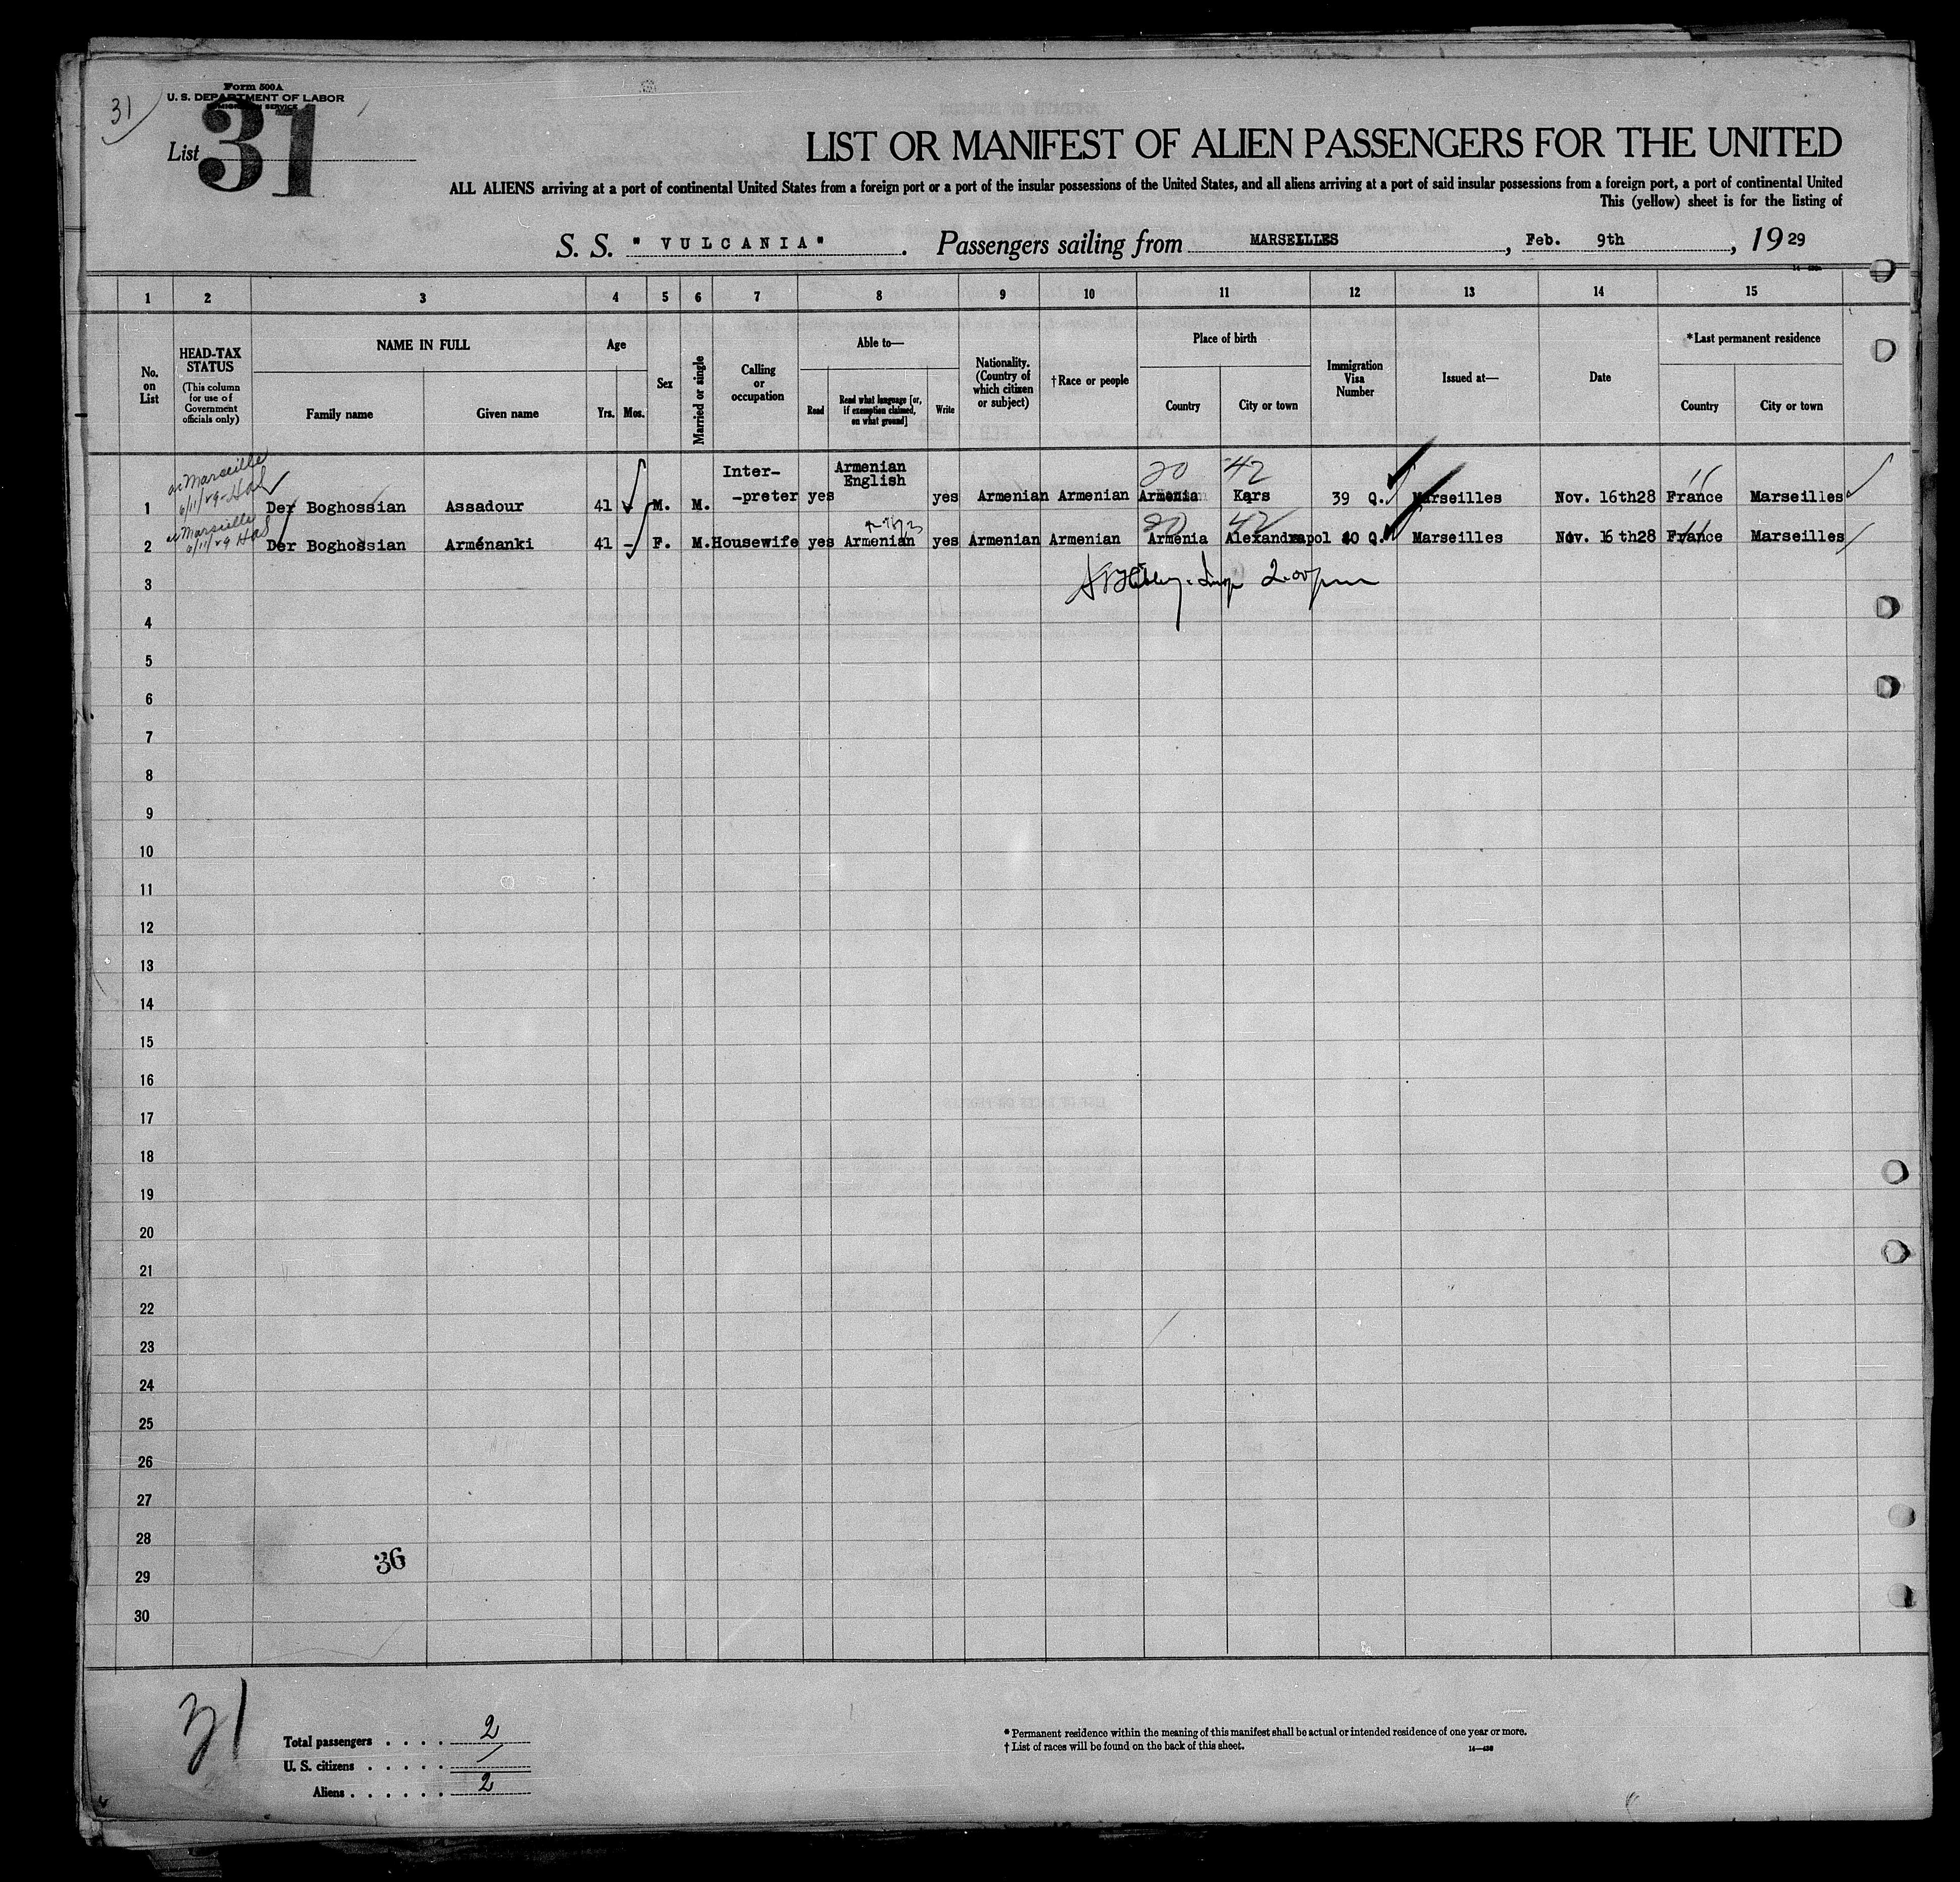 Form 500A
U. S. DEPARTMENT OF LABOR
31
List 31
LIST OR MANIFEST OF ALIEN PASSENGERS FOR THE UNITED
ALL ALIENS arriving at a port of continental United States from a foreign port or a port of the insular possessions of the United States, and all aliens arriving at a port of said insular possessions from a foreign port, a port of continental United
This (yellow) sheet is for the listing of
S. S. " VULCANIA". Passengers sailing from MARSEILLES, Feb. 9th, 1929
1 2 3 4 5 6 7 8 9 10 11 12 13 14 15
No. on List
HEAD-TAX STATUS
(This column for use of Government officials only)
NAME IN FULL
Family name
Given name
Age
Yrs. Mos.
Sex
Married or single
Calling or occupation
Able to—
Read
Read what language [or, if exemption claimed, on what ground]
Write
Nationality. (Country of which citizen or subject)
†Race or people
Place of birth
Country
City or town
Immigration Visa Number
Issued at—
Date
*Last permanent residence
Country
City or town
20 42 11
1 Marseille 6/11/29 Der Boghossian Assadour 41 M. M. Inter- -preter yes Armenian English yes Armenian Armenian Armenia Kars 39 Q. Marseilles Nov. 16th28 France Marseilles
20 42
2 Marseille 6/11/29 Der Boghossian Arménanki 41 - F. M. Housewife yes Armenian yes Armenian Armenian Armenia Alexandrapol 40 Q. Marseilles Nov. 16th28 France Marseilles
3 2.00 pm
4
5
6
7
8
9
10
11
12
13
14
15
16
17
18
19
20
21
22
23
24
25
26
27
28
36
29
30
31
Total passengers . . . . 2
U. S. citizens . . . . . /
Aliens . . . . . . 2
* Permanent residence within the meaning of this manifest shall be actual or intended residence of one year or more.
† List of races will be found on the back of this sheet.